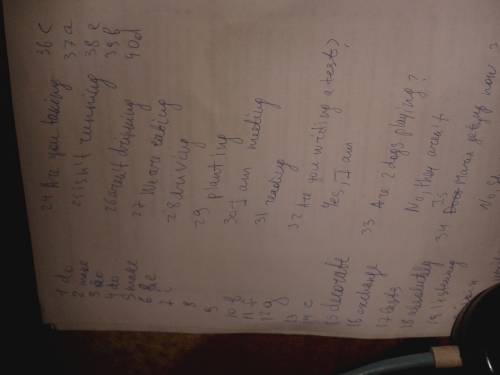 1 do
2 make
3 do
4 do
5 make
6 &c
7 c
8
9
10 g
11 f
12 g
13
14 c
15 decorate
16 exchange
17 lasts
18 absolutely
19 listening
24 Are you taking
25 is hit running
26 aren't drinking
27 We are eating
28 driving
29 planting
30 I am meeting
31 reading
32 Are you writing a tests?
Yes, I am
33 Are 2 dogs playing?
No, they aren't
34 Is Maria getting now?
36 c
37 a
38 e
39 b
40 d